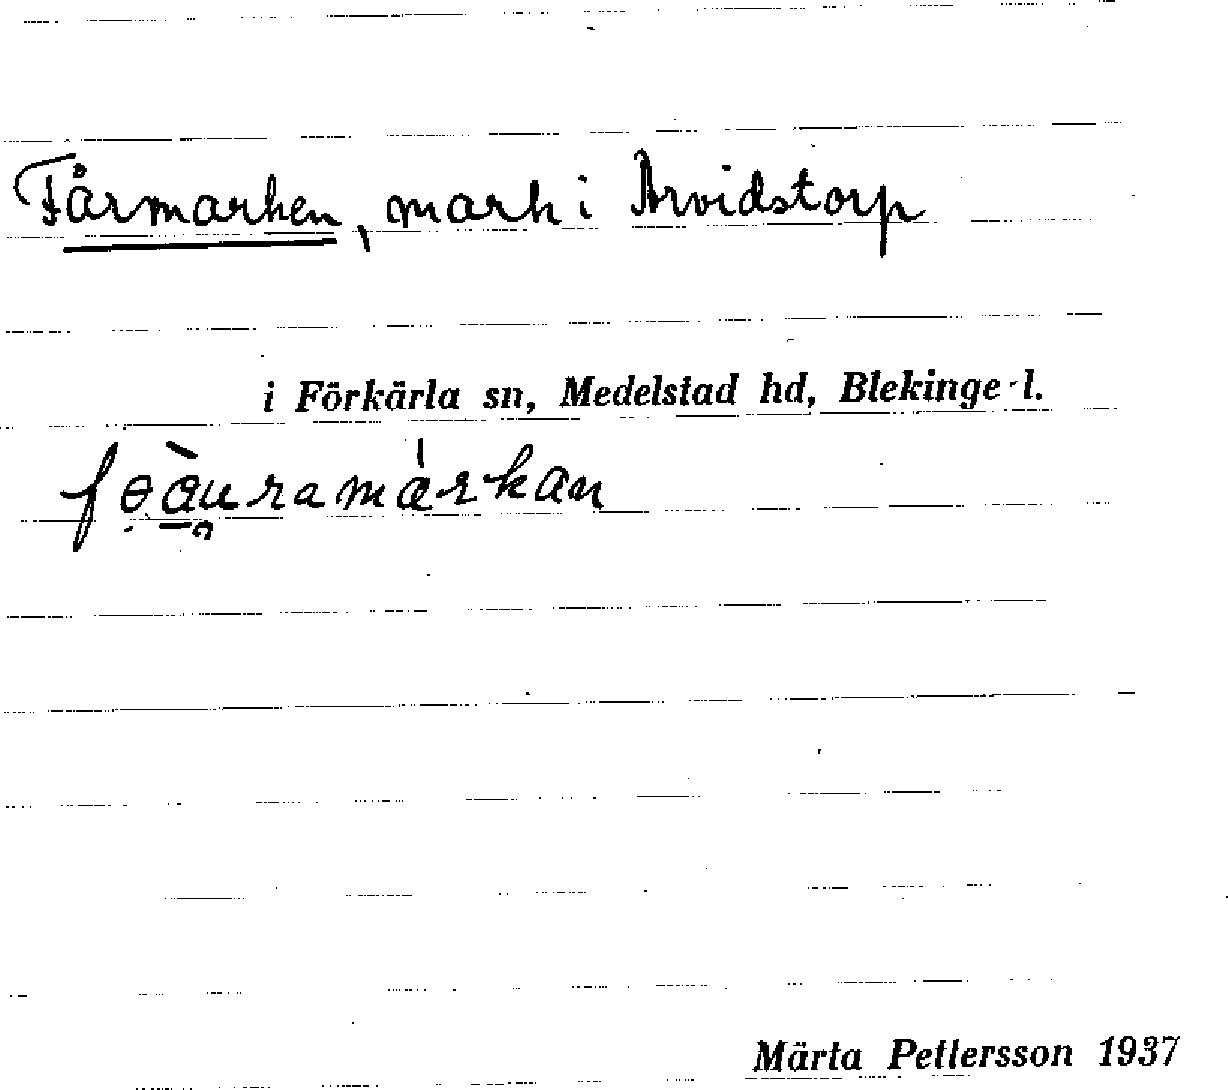 Fårmarken, mark i Arvidstorp
i Förkärla sn, Medelstad hd, Blekinge l.
fɵ̣à̱u̯ramárkan
Märta Pettersson 1937